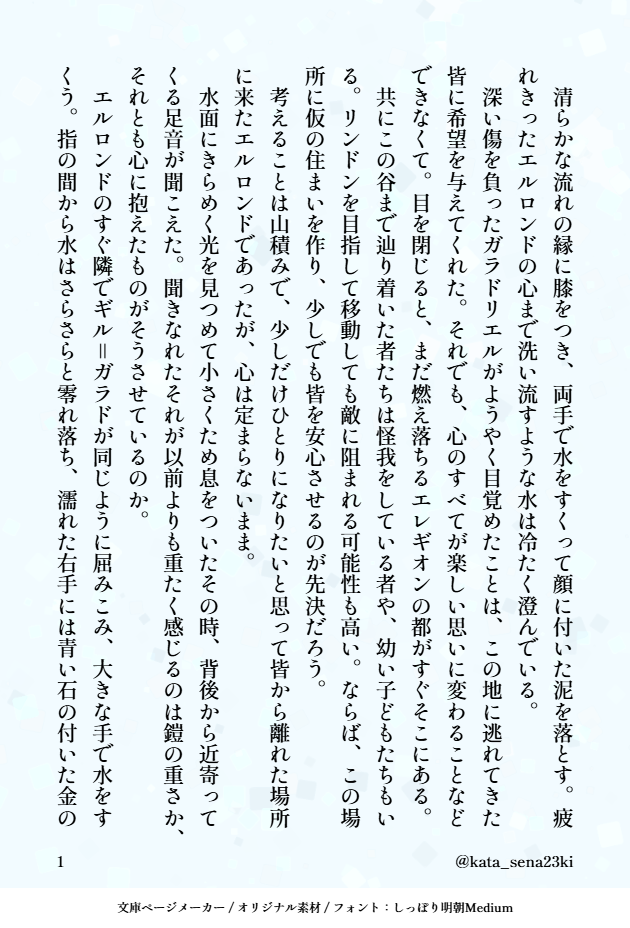 清らかな流れの縁に膝をつき、両手で水をすくって顔に付いた泥を落とす。疲
れきったエルロンドの心まで洗い流すような水は冷たく澄んでいる。
　深い傷を負ったガラドリエルがようやく目覚めたことは、この地に逃れてきた
皆に希望を与えてくれた。それでも、心のすべてが楽しい思いに変わることなど
できなくて。目を閉じると、まだ燃え落ちるエレギオンの都がすぐそこにある。
　共にこの谷まで辿り着いた者たちは怪我をしている者や、幼い子どもたちもい
る。リンドンを目指して移動しても敵に阻まれる可能性も高い。ならば、この場
所に仮の住まいを作り、少しでも皆を安心させるのが先決だろう。
　考えることは山積みで、少しだけひとりになりたいと思って皆から離れた場所
に来たエルロンドであったが、心は定まらないまま。
　水面にきらめく光を見つめて小さくため息をついたその時、背後から近寄って
くる足音が聞こえた。聞きなれたそれが以前よりも重たく感じるのは鎧の重さか、
それとも心に抱えたものがそうさせているのか。
　エルロンドのすぐ隣でギル＝ガラドが同じように屈みこみ、大きな手で水をす
くう。指の間から水はさらさらと零れ落ち、濡れた右手には青い石の付いた金の
@kata_sena23ki
1
文庫ページメーカー / オリジナル素材 / フォント：しっぽり明朝Medium